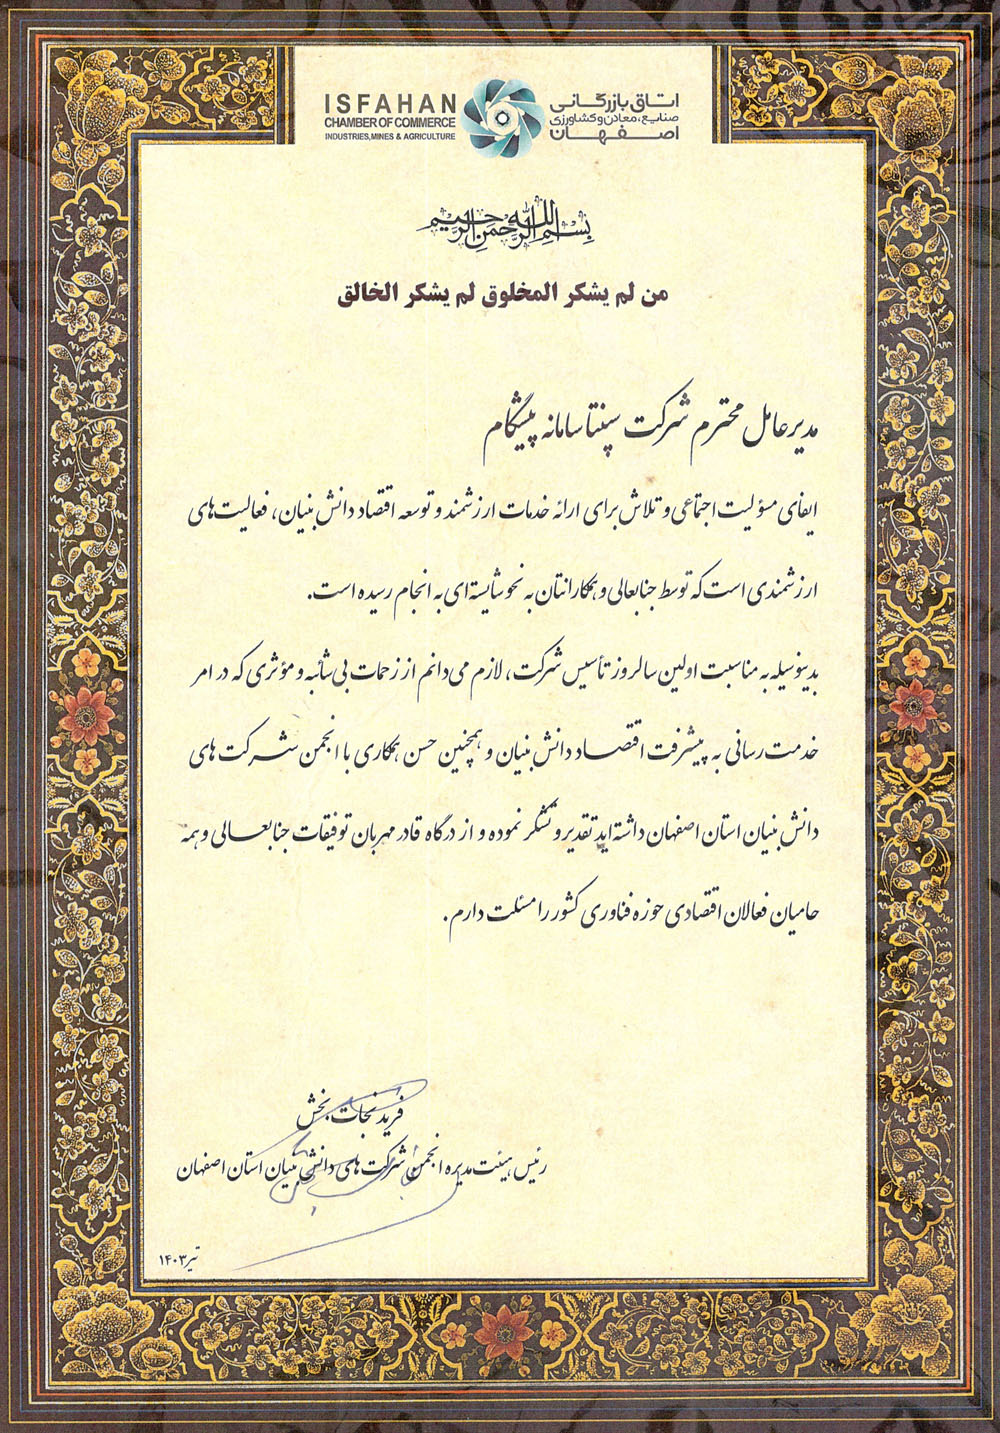 ISFAHAN
CHAMBER OF COMMERCE
INDUSTRIES, MINES & AGRICULTURE
اتاق بازرگانی
صنایع، معادن و کشاورزی
اصفهان
بسم الله الرحمن الرحیم
من لم یشکر المخلوق لم یشکر الخالق
مدیرعامل محترم شرکت سپنتا سامانه پیشگام
ایفای مسؤلیت اجتماعی و تلاش برای ارائه خدمات ارزشمند و توسعه اقتصاد دانش بنیان، فعالیت‌های
ارزشمندی است که توسط جنابعالی و همکارانتان به نحو شایسته‌ای به انجام رسیده است.
بدینوسیله به مناسبت اولین سالروز تأسیس شرکت، لازم می‌دانم از زحمات بی‌شائبه و مؤثری که در امر
خدمت رسانی به پیشرفت اقتصاد دانش بنیان و همچنین حسن همکاری با انجمن شرکت های
دانش بنیان استان اصفهان داشته‌اید تقدیر و تشکر نموده و از درگاه قادر مهربان توفیقات جنابعالی و همه
حامیان فعالان اقتصادی حوزه فناوری کشور را مسئلت دارم.
فرید نجات بخش
رئیس هیئت مدیره انجمن شرکت‌های دانش بنیان استان اصفهان
تیر ۱۴۰۳